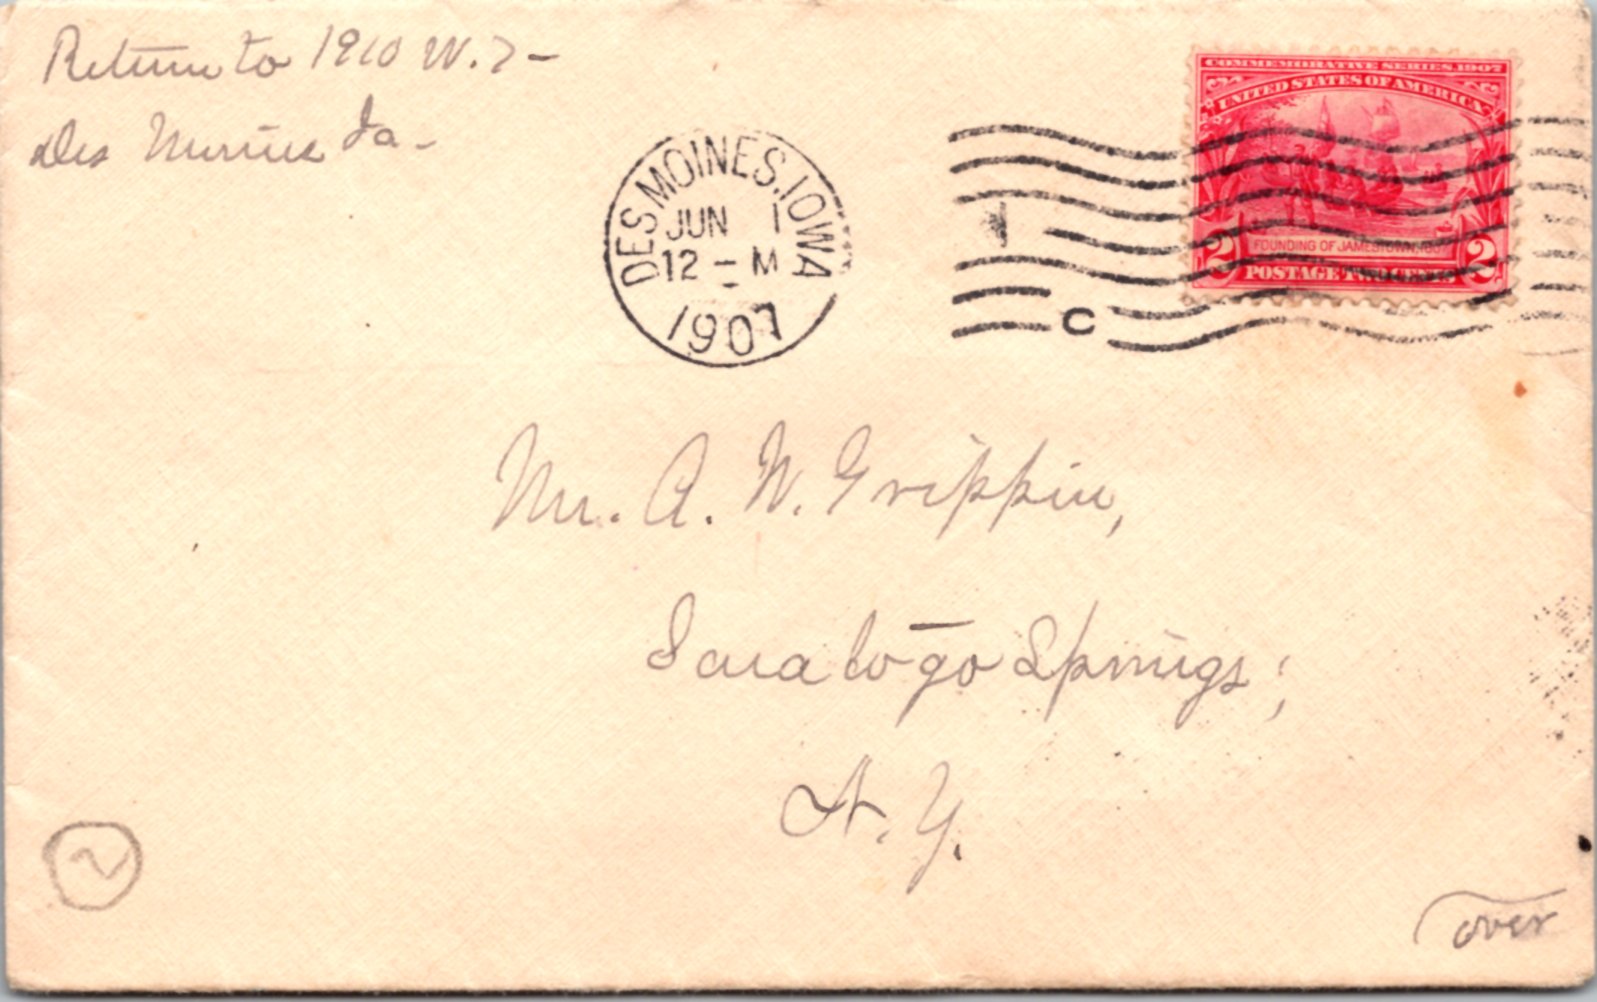 Return to 1910 W. 7 -
Des Moines Ia -
DES MOINES, IOWA
JUN 1
12 - M
1907
COMMEMORATIVE SERIES, 1907
UNITED STATES OF AMERICA
FOUNDING OF JAMESTOWN, 1607
2 POSTAGE TWO CENTS 2
C
Mr. A. W. Grippin,
Saratoga Springs,
N. Y.
2
over